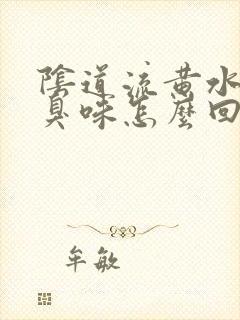 陰道流黃水
臭味怎麼回
牟敏